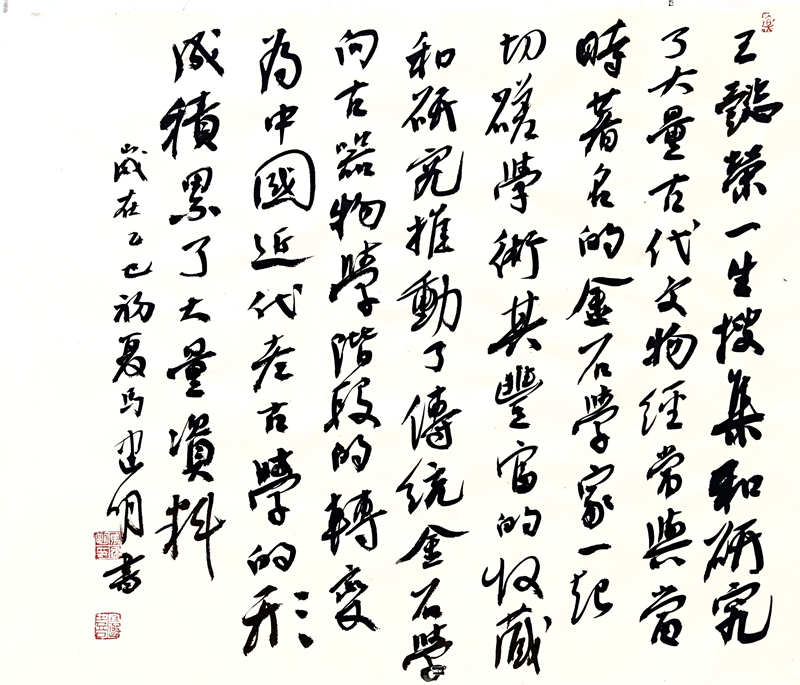 王懿榮一生搜集和研究
了大量古代文物經常與當
時著名的金石學家一起
切磋學術其豐富的收藏
和研究推動了傳統金石學
向古器物學階段的轉變
為中國近代考古學的形
成積累了大量資料
歲在乙巳初夏馬建明書